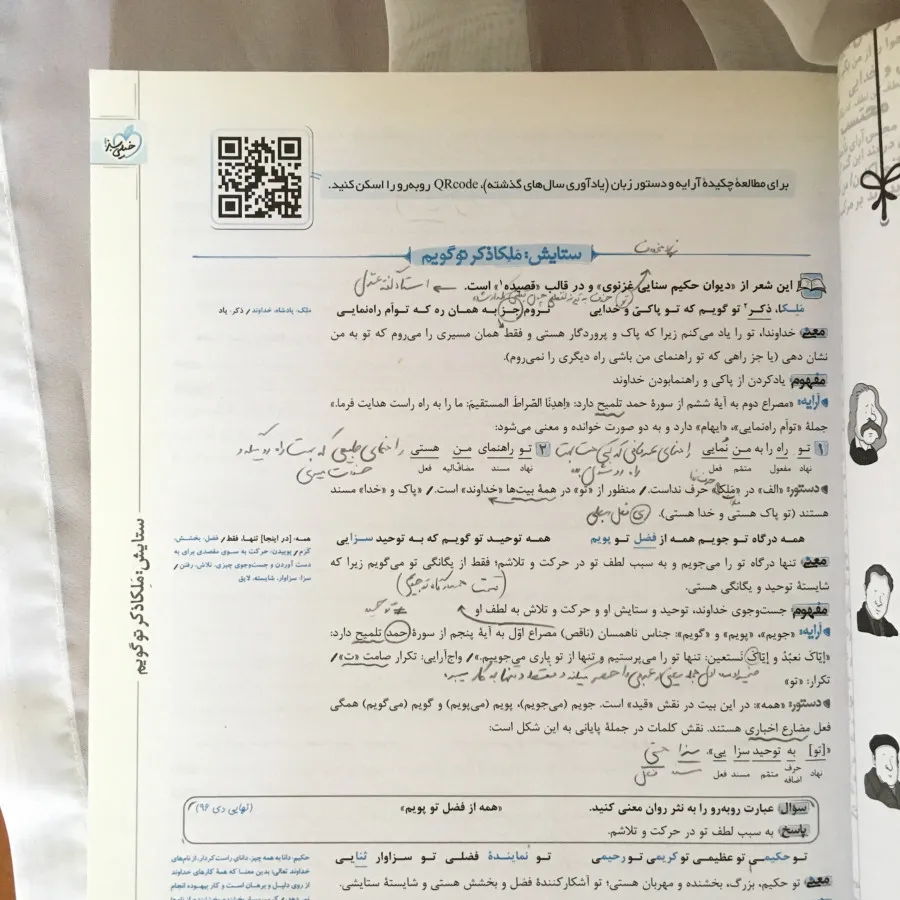 خیلی سبز
برای مطالعهٔ چکیدهٔ آرایه و دستور زبان (یادآوری سال‌های گذشته)، QRcode روبه‌رو را اسکن کنید.
ستایش: مَلِکا ذکر تو گویم
این شعر از «دیوان حکیم سنایی غزنوی» و در قالب «قصیده۱» است.
مَلِـکا، ذکـر۲ تو گویـم که تـو پاکـی و خدایی نـروم جـز به همان ره که توأم راه‌نمایی
مَلِک: پادشاه، خداوند / ذکر: یاد
معنی خداوندا، تو را یاد می‌کنم زیرا که پاک و پروردگار هستی و فقط همان مسیری را می‌روم که تو به من
نشان دهی (یا جز راهی که تو راهنمای من باشی راه دیگری را نمی‌روم).
مفهوم یادکردن از پاکی و راهنمابودن خداوند
آرایه: «مصراع دوم به آیهٔ ششم از سورهٔ حمد تلمیح دارد: «اِهدِنَا الصِّراطَ المستقیمَ: ما را به راه راست هدایت فرما.»
جملهٔ «توأم راه‌نمایی»، «ایهام» دارد و به دو صورت خوانده و معنی می‌شود:
۱ تو راه را به من نُمایی ۲ تو راهنمای من هستی
نهاد مفعول متمّم فعل نهاد مسند مضاف‌الیه فعل
دستور: «الف» در «مَلِکا» حرف نداست. / منظور از «تو» در همهٔ بیت‌ها «خداوند» است. / «پاک و «خدا» مسند
هستند (تو پاک هستی و خدا هستی).
همه درگاه تو جویـم همه از فضل تو پویم همه توحیـد تو گویم که به توحید سزایی
همه: [در اینجا] تنها، فقط / فضل: بخشش،
کرَم / پوییدن: حرکت به سوی مقصدی برای به
دست آوردن و جست‌وجوی چیزی، تلاش، رفتن /
سزا: سزاوار، شایسته، لایق
معنی تنها درگاه تو را می‌جویم و به سبب لطف تو در حرکت و تلاشم؛ فقط از یگانگی تو می‌گویم زیرا که
شایستهٔ توحید و یگانگی هستی.
مفهوم جست‌وجوی خداوند، توحید و ستایش او و حرکت و تلاش به لطف او
آرایه: «جویم»، «پویم» و «گویم»: جناس ناهمسان (ناقص) مصراع اوّل به آیهٔ پنجم از سورهٔ حمد تلمیح دارد:
«اِیّاکَ نعبُدُ و اِیّاکَ نَستعین: تنها تو را می‌پرستیم و تنها از تو یاری می‌جوییم.» / واج‌آرایی: تکرار صامت «ت» /
تکرار: «تو»
دستور: «همه»: در این بیت در نقش «قید» است. جویم (می‌جویم)، پویم (می‌پویم) و گویم (می‌گویم) همگی
فعل مضارع اخباری هستند. نقش کلمات در جملهٔ پایانی به این شکل است:
«[تو] به توحید سزا یی».
نهاد حرف اضافه متمّم مسند فعل
سؤال عبارت روبه‌رو را به نثر روان معنی کنید. «همه از فضل تو پویم» (نهایی دی ۹۶)
پاسخ به سبب لطف تو در حرکت و تلاشم.
تـو حکیمـی تو عظیمـی تو کریمـی تـو رحیمـی تو نماینـدهٔ فضلـی تو سـزاوار ثنـایی
حکیم: دانا به همه چیز، دانای راست‌کردار، از نام‌های
خداوند تعالی؛ بدین معنا که همهٔ کارهای خداوند
از روی دلیل و برهان است و کار بیهوده انجام
معنی تو حکیم، بزرگ، بخشنده و مهربان هستی؛ تو آشکارکنندهٔ فضل و بخشش هستی و شایستهٔ ستایشی.
ستایش: مَلِکا ذکر تو گویم